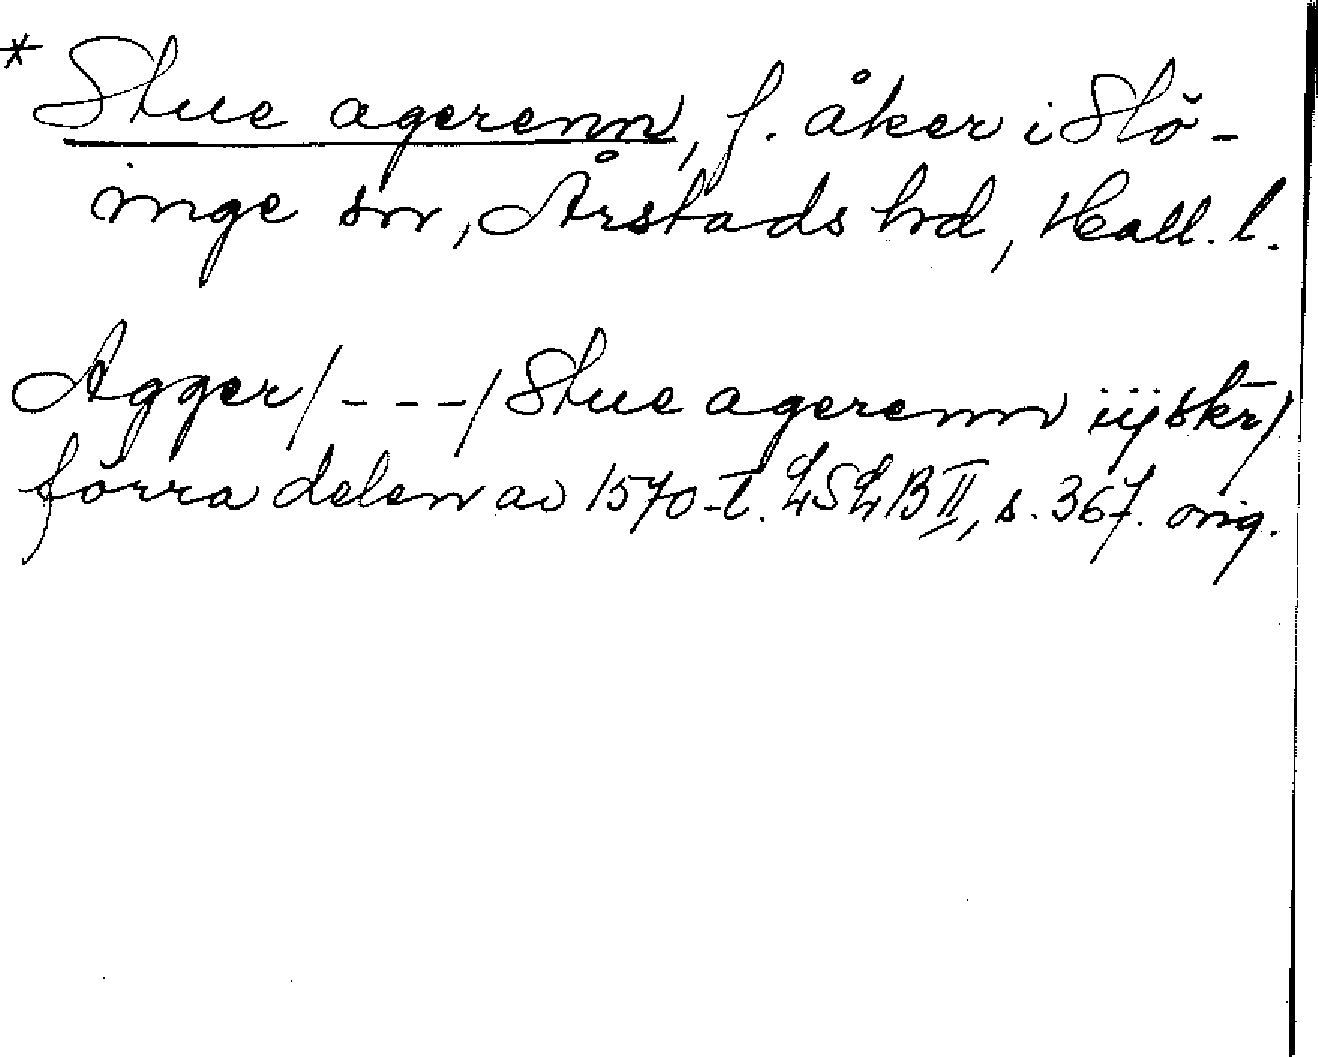 * Stue agerenn, f. åker i Slö-
inge sn, Årstads hd, Hall. l.
Agger / - - - / Stue agerenn iij skr /
förra delen av 1570-t. LSLB II, s. 367. orig.